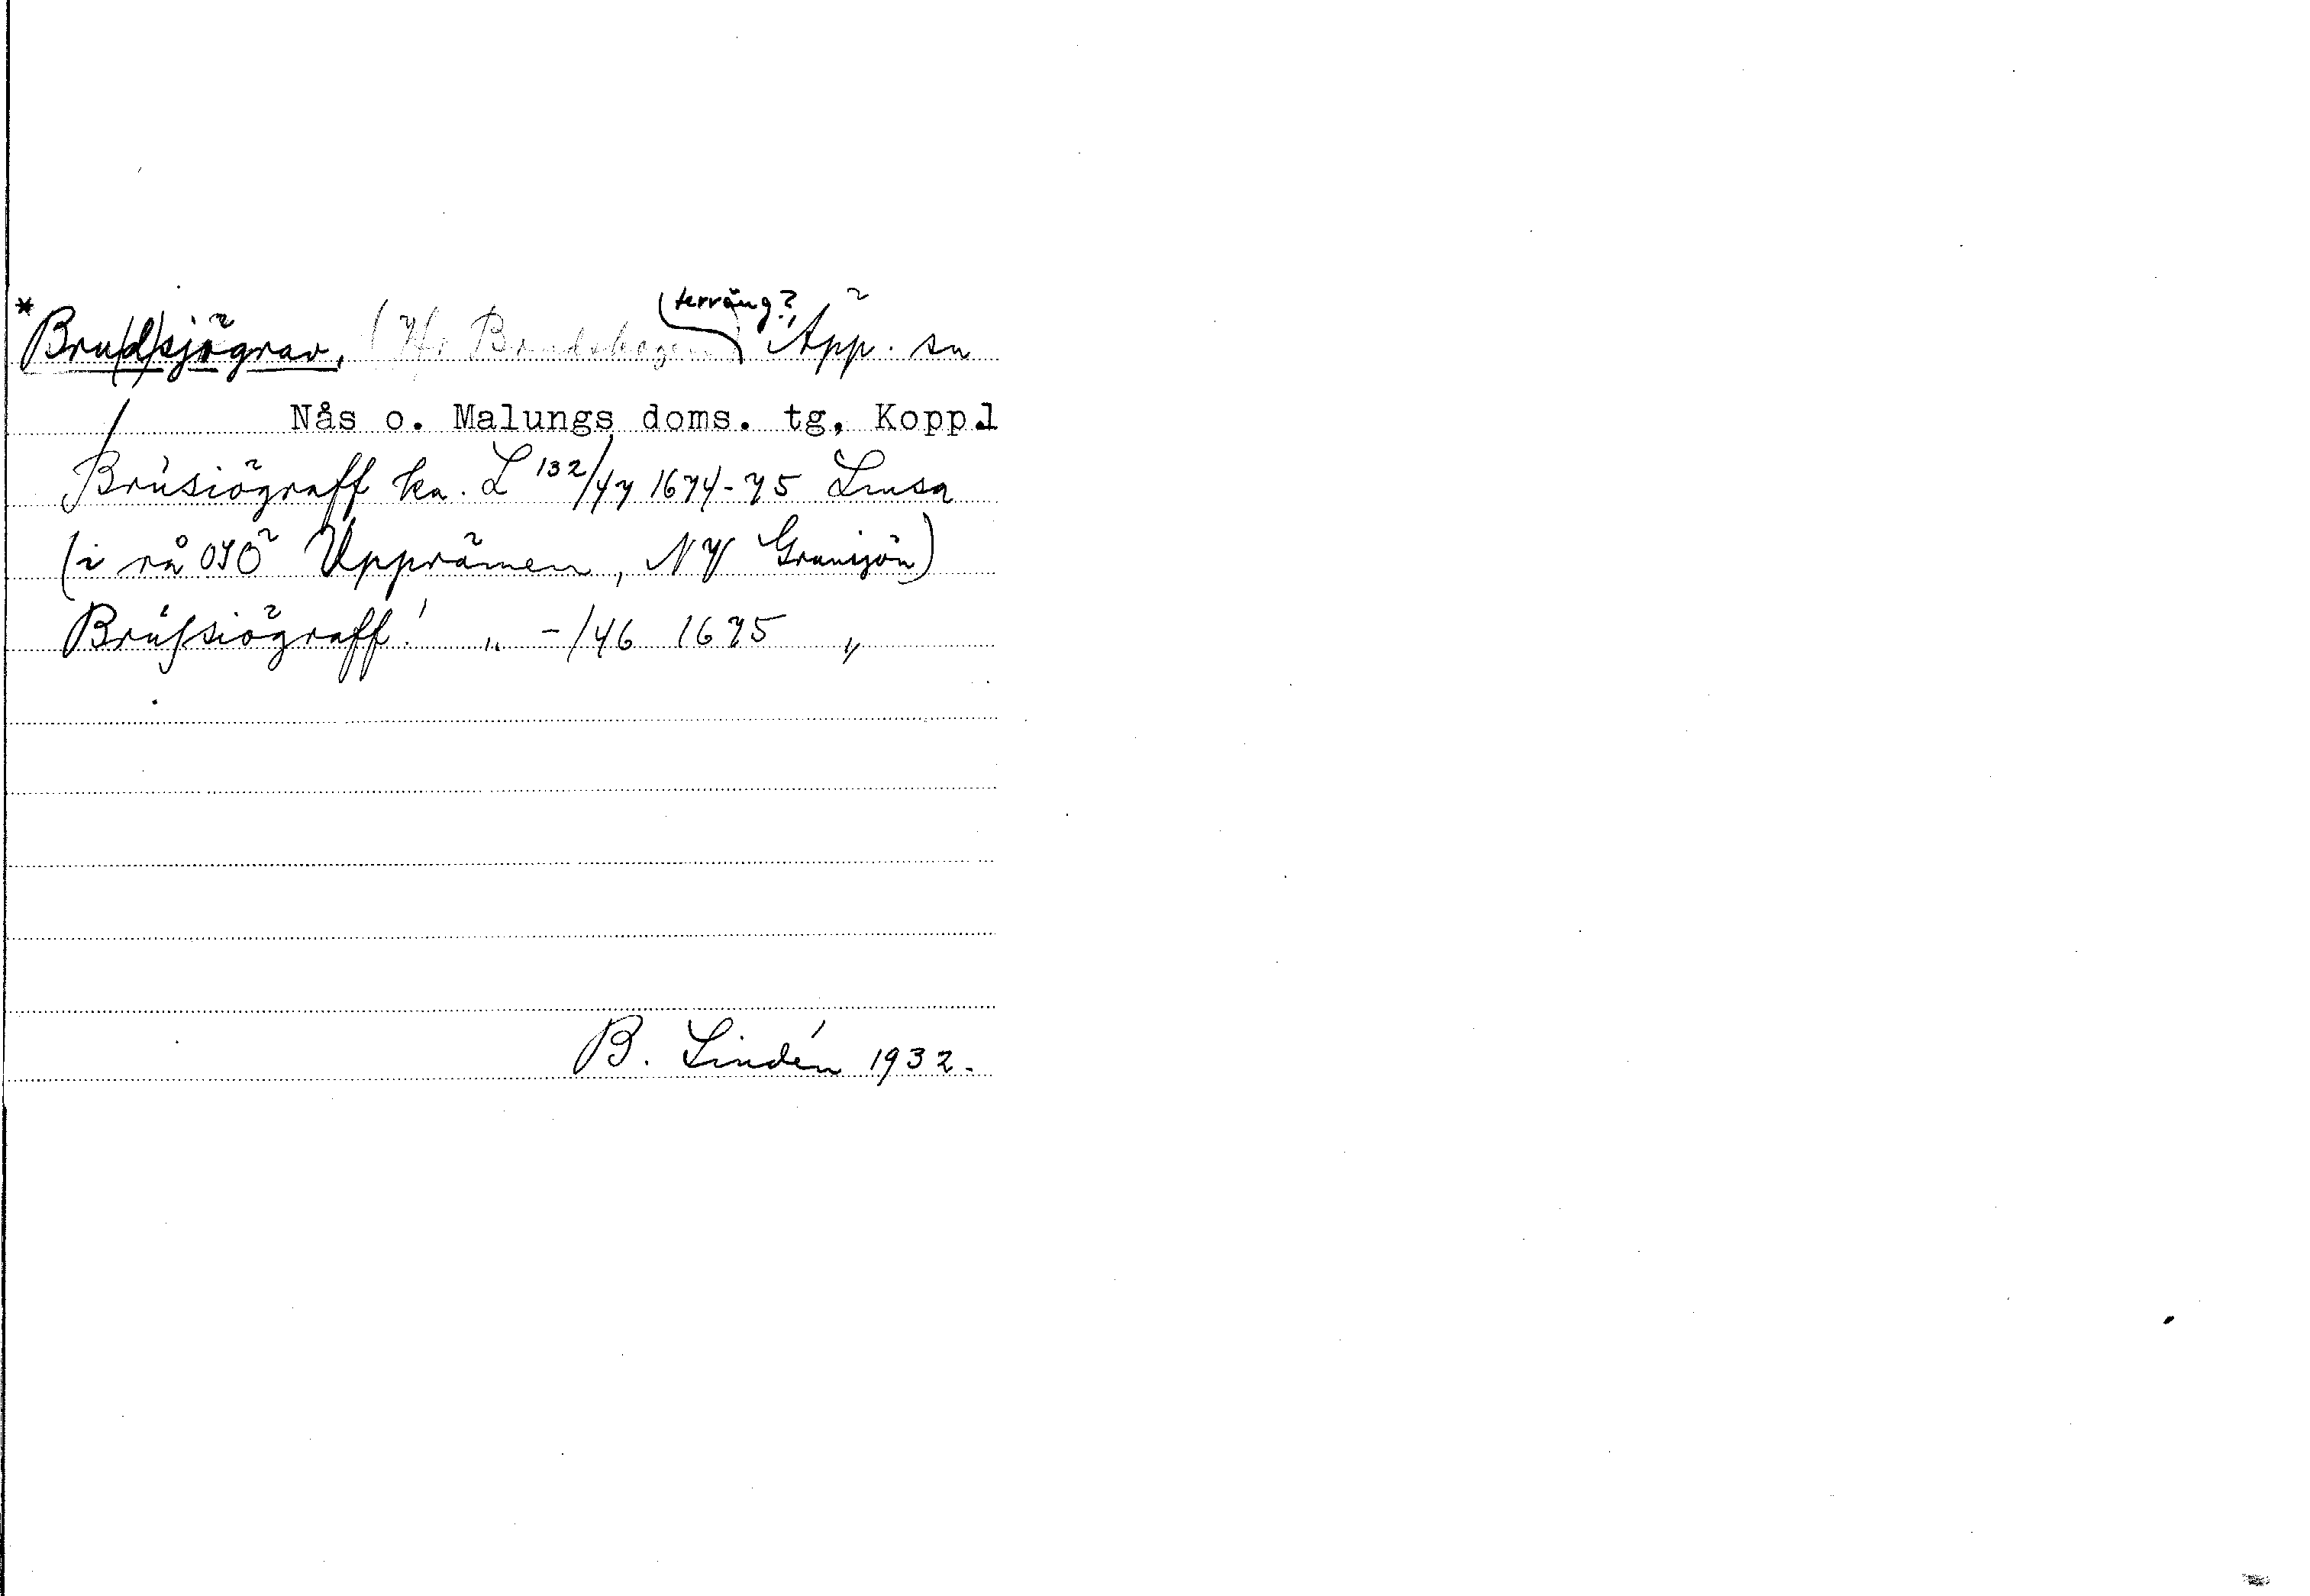 *Bru(d)sjögrav, (terräng?, Äpp. sn
Nås o. Malungs doms. tg, Koppl
Brúsiögraff ka. L 132/47 1674-75 Limsn
(i rå OSO Upprämen, NV Gransjön)
Brúſsiögraff! „ -/46 1675 „
B. Lindén 1932.